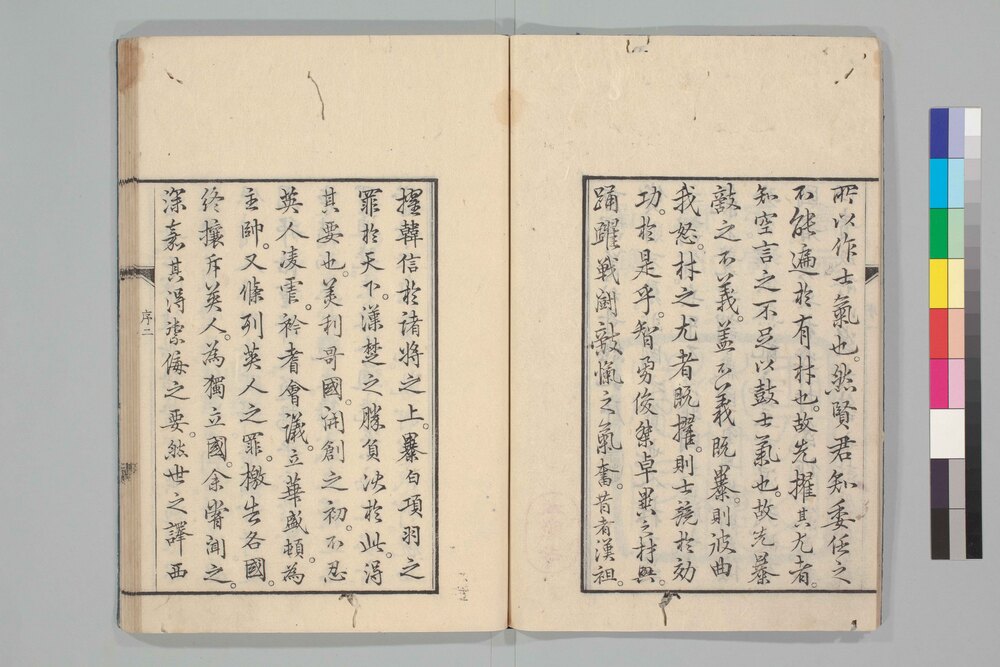 所以作士氣也。然賢君知委任之
不能遍於有材也。故先擢其尤者。
知空言之不足以鼓士氣也。故先暴
敵之不義。蓋不義既暴。則彼曲
我怒。材之尤者既擢。則士競於効
功。於是乎。智勇俊傑卓異之材興。
踊躍戰鬭敵愾之氣奮。昔者漢祖。
擢韓信於諸將之上。暴白項羽之
罪於天下。漢楚之勝負決於此。得
其要也。美利哥國。開創之初。不忍
英人凌虐。衿耆會議。立華盛頓為
主帥。又條列英人之罪。檄告各國。
終攘斥英人。為獨立國。余嘗聞之。
深嘉其得禦侮之要。然世之譯西
序二